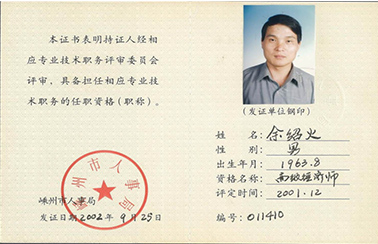 本证书表明持证人经相
应专业技术职务评审委员会
评审,具备担任相应专业技
术职务的任职资格(职称)。
嵊州市人事局
嵊州市人事局
发证日期 2002 年 9 月 25 日
(发证单位钢印)
姓 名: 余绍火
性 别: 男
出生年月: 1963.8
资格名称: 高级经济师
评定时间: 2001.12
编号: 011410